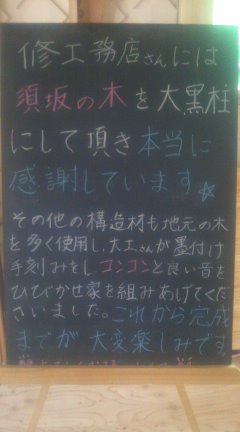 修工務店さんには
須坂の木を大黒柱
にして頂き本当に
感謝しています☆
その他の構造材も地元の木
を多く使用し、大工さんが墨付け
手刻みをしコンコンと良い音を
ひびかせ家を組みあげてくだ
さいました。これから完成
までが大変楽しみです